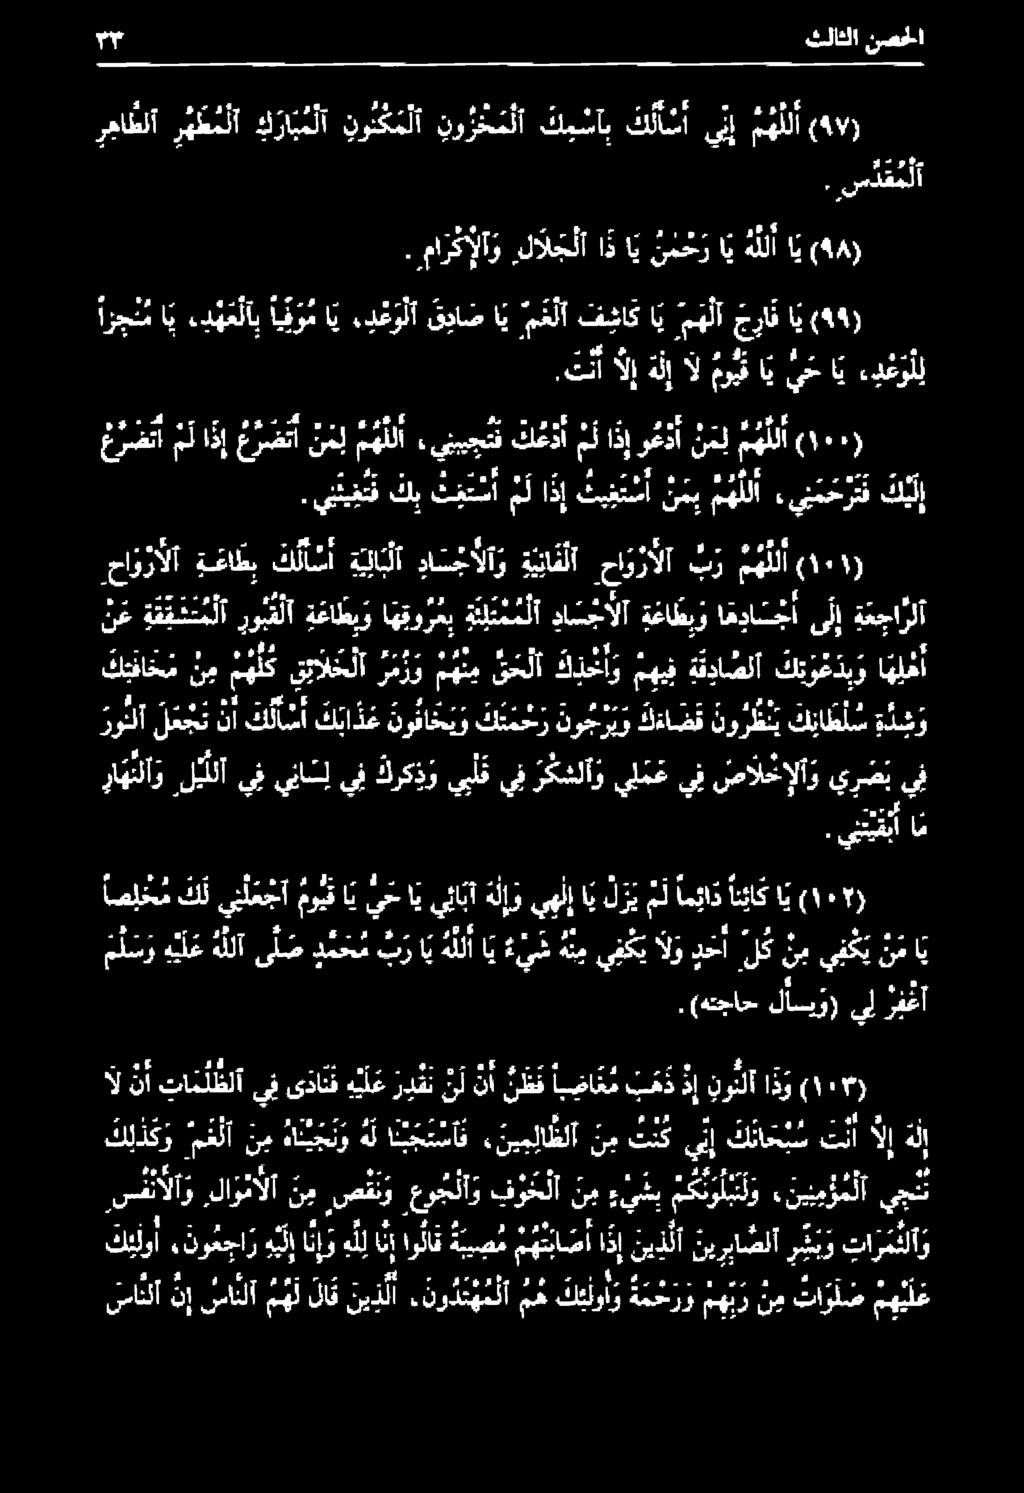 الحصن الثالث ٣٣
(٩٧) أَللَّهُمَّ إِنِّي أَسْأَلُكَ بِآسْمِكَ ٱلْمَخْزُونِ ٱلْمَكْنُونِ ٱلْمُبَارَكِ ٱلْمُطَهَّرِ ٱلطَّاهِرِ
ٱلْمُقَدَّسِ.
(٩٨) يَا أَللَّهُ يَا رَحْمٰنُ يَا ذَا ٱلْجَلَالِ وَٱلْإِكْرَامِ.
(٩٩) يَا فَارِجَ ٱلْهَمِّ يَا كَاشِفَ ٱلْغَمِّ يَا صَادِقَ ٱلْوَعْدِ، يَا مُوَفِّياً بِٱلْعَهْدِ، يَا مُنْجِزاً
لِلْوَعْدِ، يَا حَيُّ يَا قَيُّومُ لَا إِلٰهَ إِلَّا أَنْتَ.
(١٠٠) أَللَّهُمَّ لِمَنْ أَدْعُو إِذَا لَمْ أَدْعُكَ فَتُجِيبُنِي، أَللَّهُمَّ لِمَنْ أَتَضَرَّعُ إِذَا لَمْ أَتَضَرَّعْ
إِلَيْكَ فَتَرْحَمُنِي، أَللَّهُمَّ بِمَنْ أَسْتَغِيثُ إِذَا لَمْ أَسْتَغِثْ بِكَ فَتُغِيثُنِي.
(١٠١) أَللَّهُمَّ رَبَّ ٱلْأَرْوَاحِ ٱلْفَانِيَةِ وَٱلْأَجْسَادِ ٱلْبَالِيَةِ أَسْأَلُكَ بِطَاعَةِ ٱلْأَرْوَاحِ
ٱلرَّاجِعَةِ إِلَى أَجْسَادِهَا وَبِطَاعَةِ ٱلْأَجْسَادِ ٱلْمُمْتَلِئَةِ بِعُرُوقِهَا وَبِطَاعَةِ ٱلْقُبُورِ ٱلْمُتَشَقِّقَةِ عَنْ
أَهْلِهَا وَبِدَعْوَتِكَ ٱلصَّادِقَةِ فِيهِمْ وَأَخْذِكَ ٱلْحَقَّ مِنْهُمْ وَزُمَرُ ٱلْخَلَائِقِ كُلُّهُمْ مِنْ مَخَافَتِكَ
وَشِدَّةِ سُلْطَانِكَ يَنْظُرُونَ قَضَاءَكَ وَيَرْجُونَ رَحْمَتَكَ وَيَخَافُونَ عَذَابَكَ أَسْأَلُكَ أَنْ تَجْعَلَ ٱلنُّورَ
فِي بَصَرِي وَٱلْإِخْلَاصَ فِي عَمَلِي وَٱلشُّكْرَ فِي قَلْبِي وَذِكْرَكَ فِي لِسَانِي فِي ٱللَّيْلِ وَٱلنَّهَارِ
مَا أَبْقَيْتَنِي.
(١٠٢) يَا كَائِناً دَائِماً لَمْ يَزَلْ يَا إِلٰهِي وَإِلٰهَ آبَائِي يَا حَيُّ يَا قَيُّومُ ٱجْعَلْنِي لَكَ مُخْلِصاً
يَا مَنْ يَكْفِي مِنْ كُلِّ أَحَدٍ وَلَا يَكْفِي مِنْهُ شَيْءٌ يَا أَللَّهُ يَا رَبَّ مُحَمَّدٍ صَلَّى ٱللَّهُ عَلَيْهِ وَسَلَّمَ
ٱغْفِرْ لِي (وَيسأل حاجته).
(١٠٣) وَذَا ٱلنُّونِ إِذْ ذَهَبَ مُغَاضِباً فَظَنَّ أَنْ لَنْ نَقْدِرَ عَلَيْهِ فَنَادَى فِي ٱلظُّلُمَاتِ أَنْ لَا
إِلٰهَ إِلَّا أَنْتَ سُبْحَانَكَ إِنِّي كُنْتُ مِنَ ٱلظَّالِمِينَ، فَٱسْتَجَبْنَا لَهُ وَنَجَّيْنَاهُ مِنَ ٱلْغَمِّ وَكَذٰلِكَ
نُنْجِي ٱلْمُؤْمِنِينَ، وَلَنَبْلُوَنَّكُمْ بِشَيْءٍ مِنَ ٱلْخَوْفِ وَٱلْجُوعِ وَنَقْصٍ مِنَ ٱلْأَمْوَالِ وَٱلْأَنْفُسِ
وَٱلثَّمَرَاتِ وَبَشِّرِ ٱلصَّابِرِينَ ٱلَّذِينَ إِذَا أَصَابَتْهُمْ مُصِيبَةٌ قَالُوا إِنَّا لِلَّهِ وَإِنَّا إِلَيْهِ رَاجِعُونَ، أُولٰئِكَ
عَلَيْهِمْ صَلَوَاتٌ مِنْ رَبِّهِمْ وَرَحْمَةٌ وَأُولٰئِكَ هُمُ ٱلْمُهْتَدُونَ، ٱلَّذِينَ قَالَ لَهُمُ ٱلنَّاسُ إِنَّ ٱلنَّاسَ